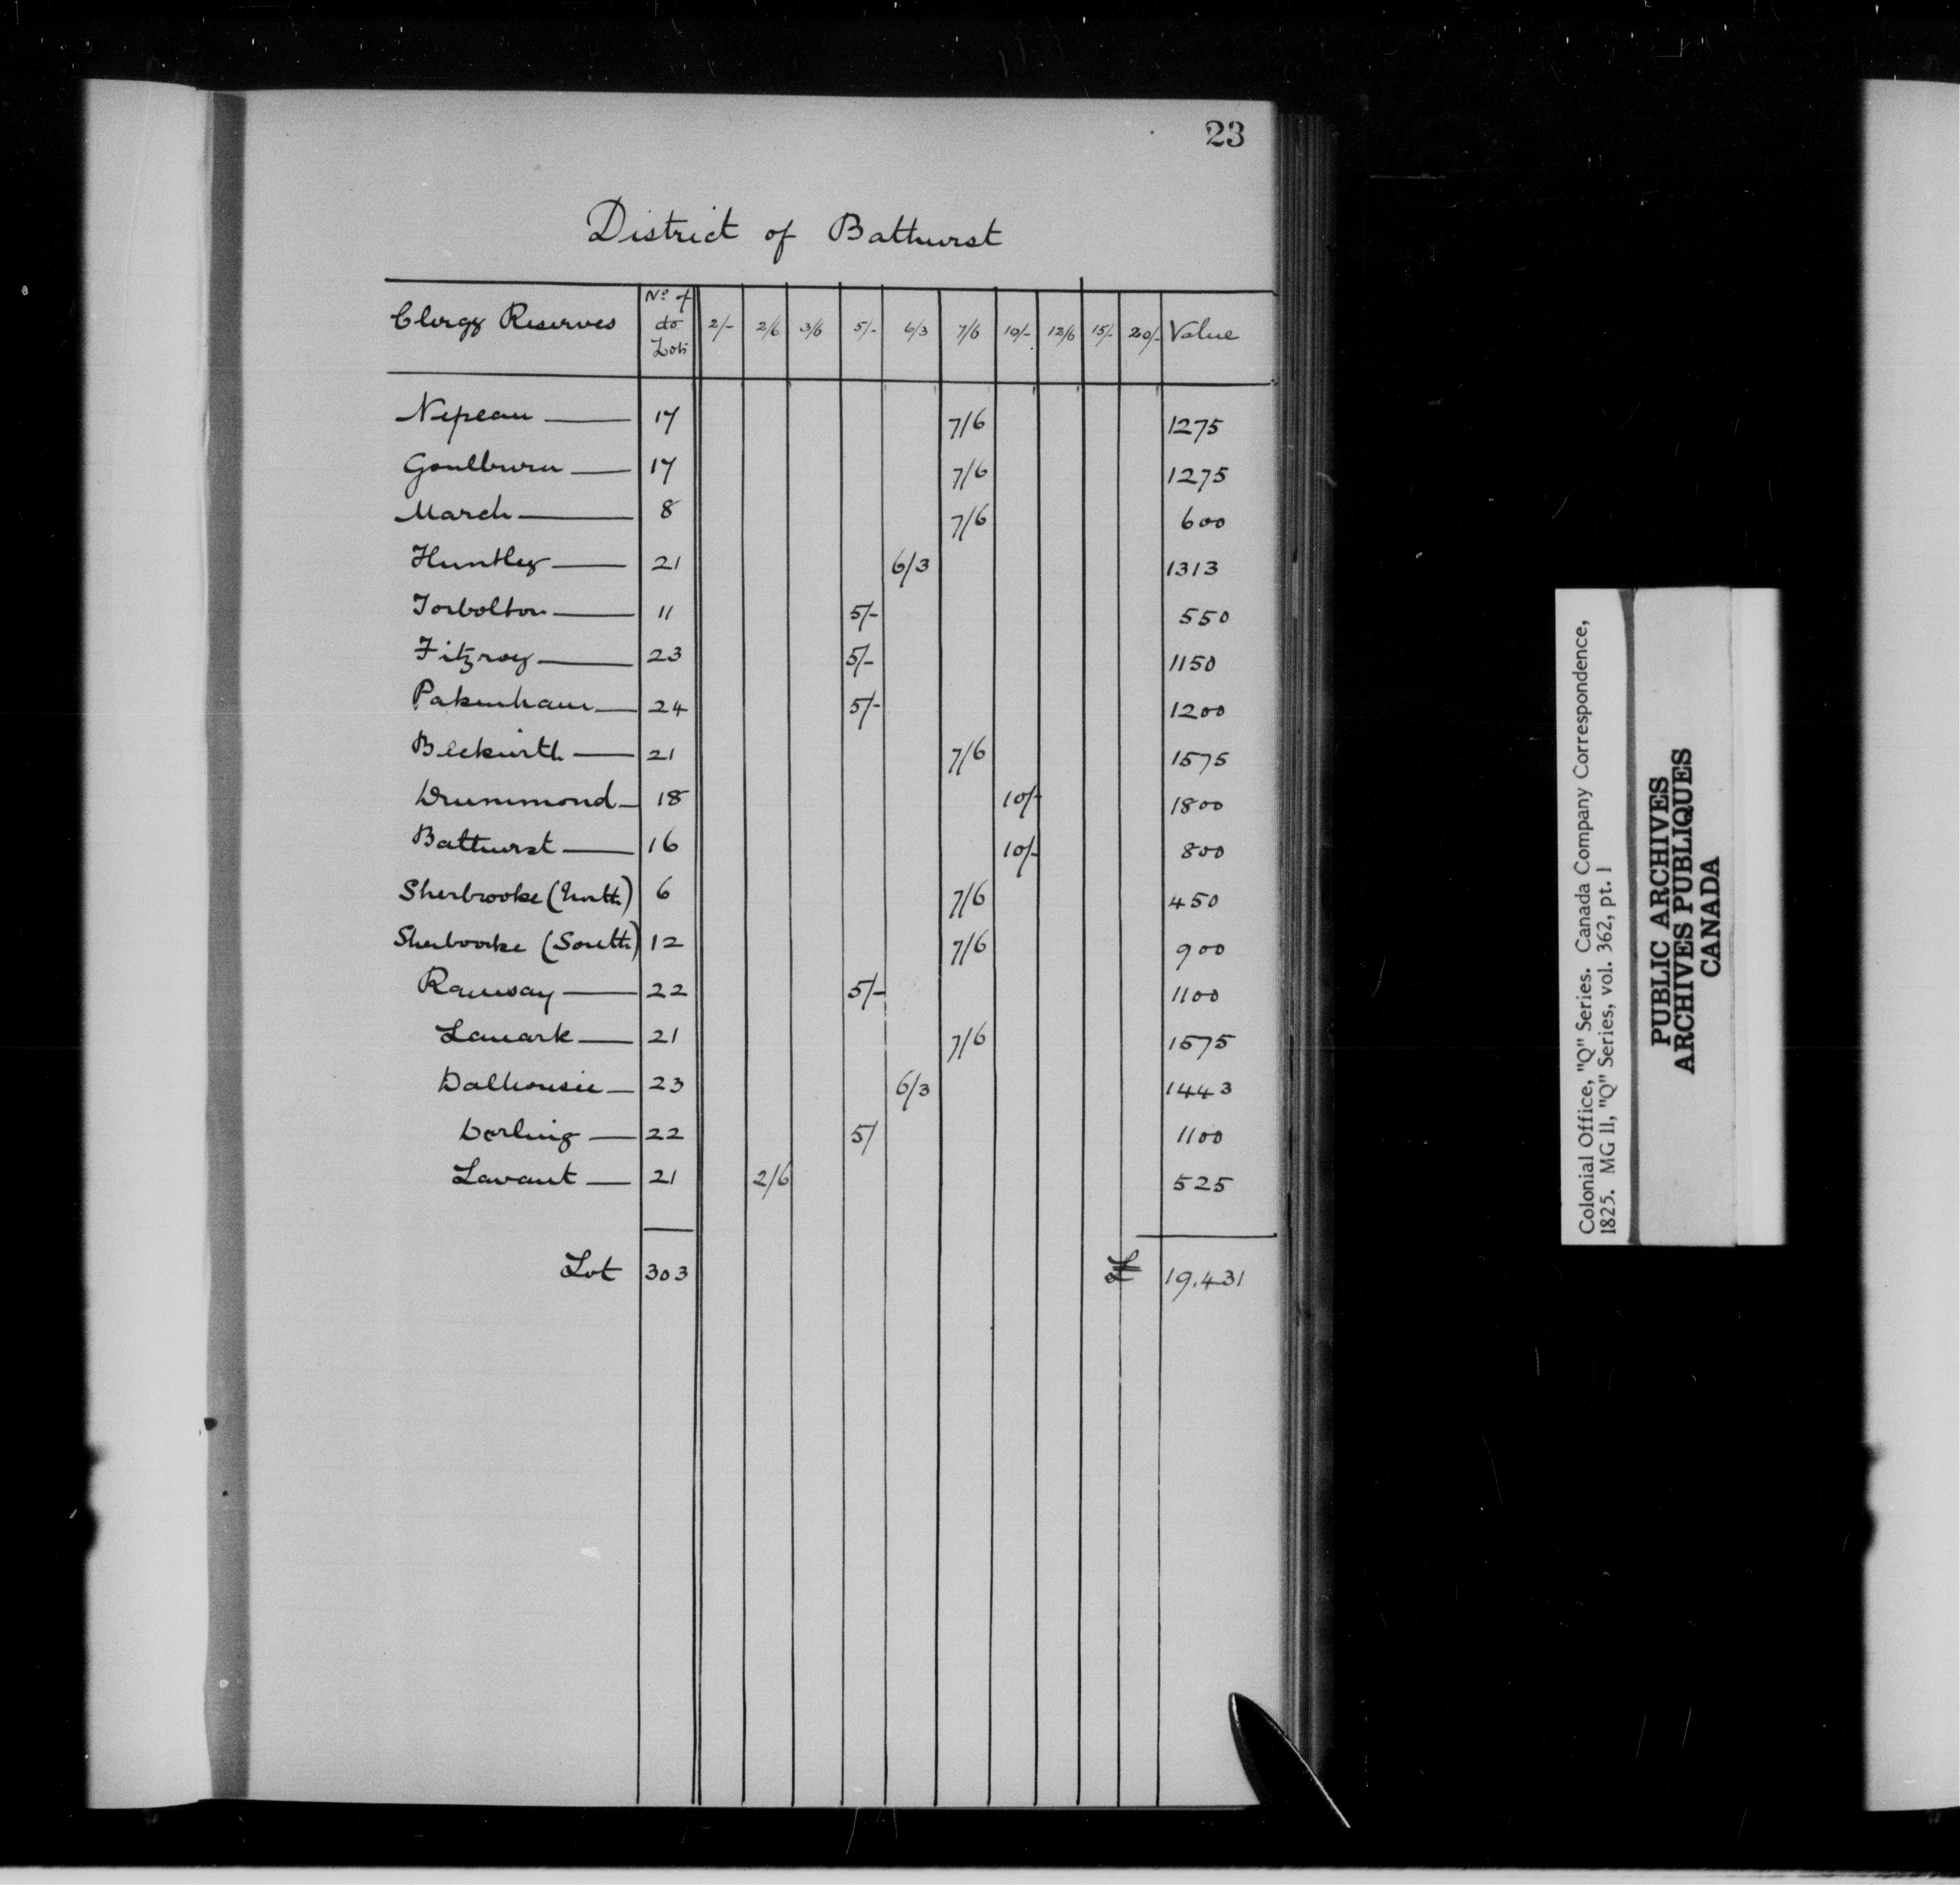 23
District of Bathurst
Clergy Reserves | No of do Lots | 2/- | 2/6 | 3/6 | 5/- | 6/3 | 7/6 | 10/- | 12/6 | 15/- | 20/- | Value
Nepean — 17 7/6 1275
Goulburn — 17 7/6 1275
March — 8 7/6 600
Huntley — 21 6/3 1313
Torbolton — 11 5/- 550
Fitzroy — 23 5/- 1150
Pakenham — 24 5/- 1200
Beckwith — 21 7/6 1575
Drummond — 18 10/- 1800
Bathurst — 16 10/- 800
Sherbrooke (North) 6 7/6 450
Sherbrooke (South) 12 7/6 900
Ramsay — 22 5/- 1100
Lanark — 21 7/6 1575
Dalhousie — 23 6/3 1443
Darling — 22 5/ 1100
Lavant — 21 2/6 525
Lot 303 £ 19.431
Colonial Office, "Q" Series. Canada Company Correspondence,
1825. MG 11, "Q" Series, vol. 362, pt. 1
PUBLIC ARCHIVES
ARCHIVES PUBLIQUES
CANADA